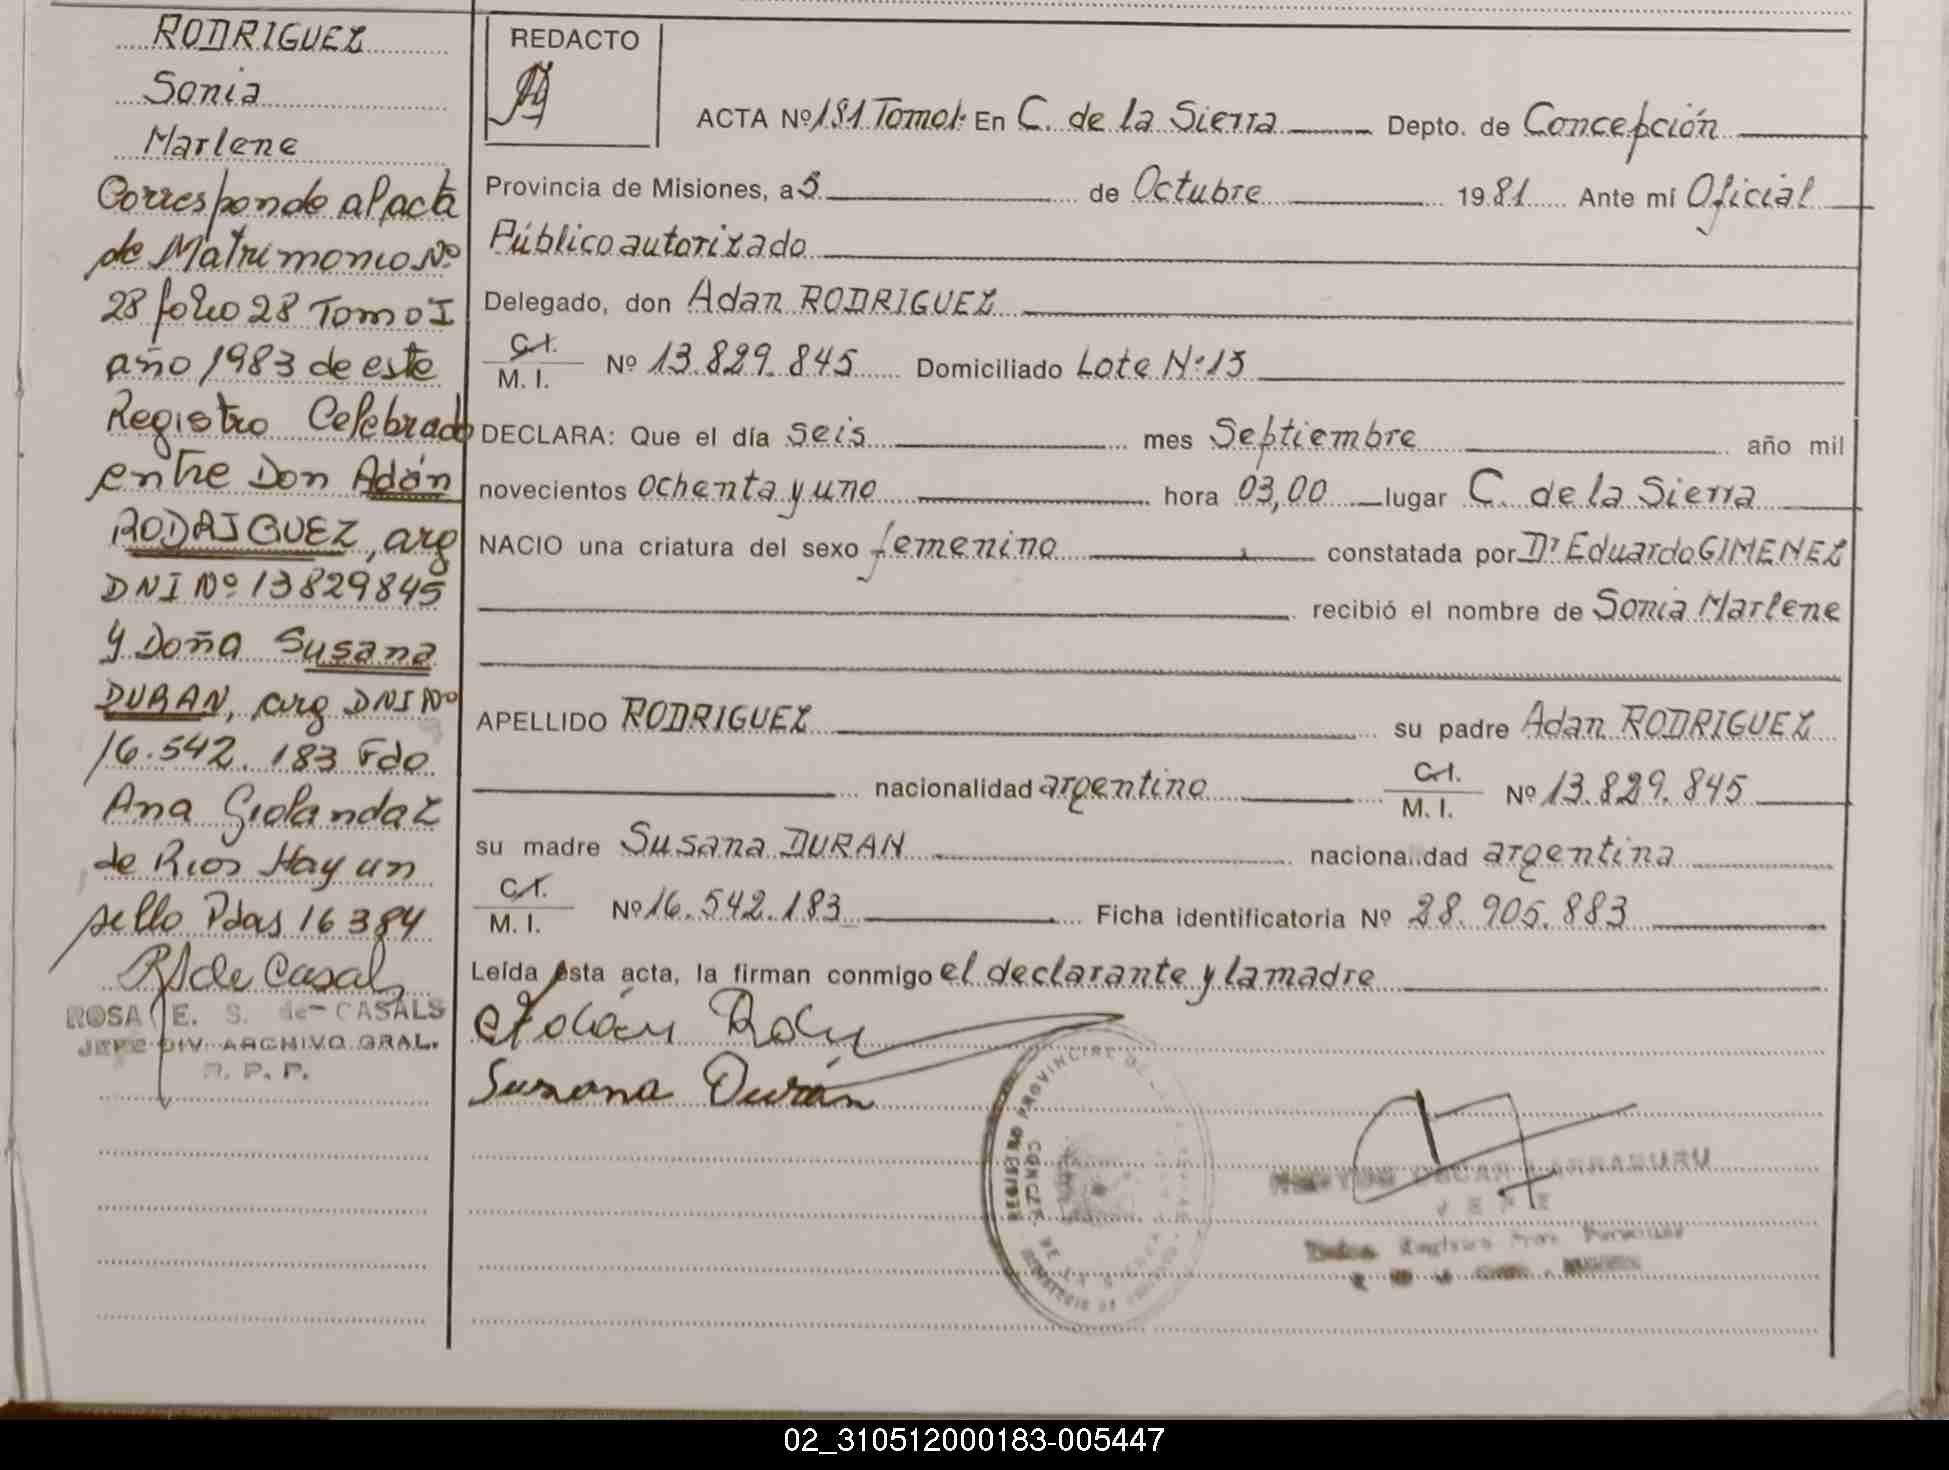 RODRIGUEZ
Sonia
Marlene
Corresponde al acta
de Matrimonio Nº
28 folio 28 Tomo I
año 1983 de este
Registro Celebrado
entre Don Adán
RODRIGUEZ, arg
DNI Nº 13829845
y Doña Susana
DURAN, arg DNI Nº
16.542.183 Fdo
Ana Giolandaz
de Rios Hay un
sello Pdas 16384
ROSA E. S. de CASALS
JEFE DIV. ARCHIVO GRAL.
R. P. P.
REDACTO
ACTA Nº 181 Tomo 1. En C. de la Sierra Depto. de Concepción
Provincia de Misiones, a 5 de Octubre 1981 Ante mí Oficial
Público autorizado
Delegado, don Adan RODRIGUEZ
C.I.
M. I. Nº 13.829.845 Domiciliado Lote Nº 15
DECLARA: Que el día seis mes Septiembre año mil
novecientos ochenta y uno hora 03,00 lugar C. de la Sierra
NACIO una criatura del sexo femenino constatada por Dr Eduardo GIMENEZ
recibió el nombre de Sonia Marlene
APELLIDO RODRIGUEZ su padre Adan RODRIGUEZ
nacionalidad argentino C.I.
M. I. Nº 13.829.845
su madre Susana DURAN naciona..dad argentina
C.I.
M. I. Nº 16.542.183 Ficha identificatoria Nº 28.905.883
Leída esta acta, la firman conmigo el declarante y la madre
Susana Durán
REGISTRO PROVINCIAL DE
CONCEP.
OSCAR LARRABURU
JEFE
02_310512000183-005447